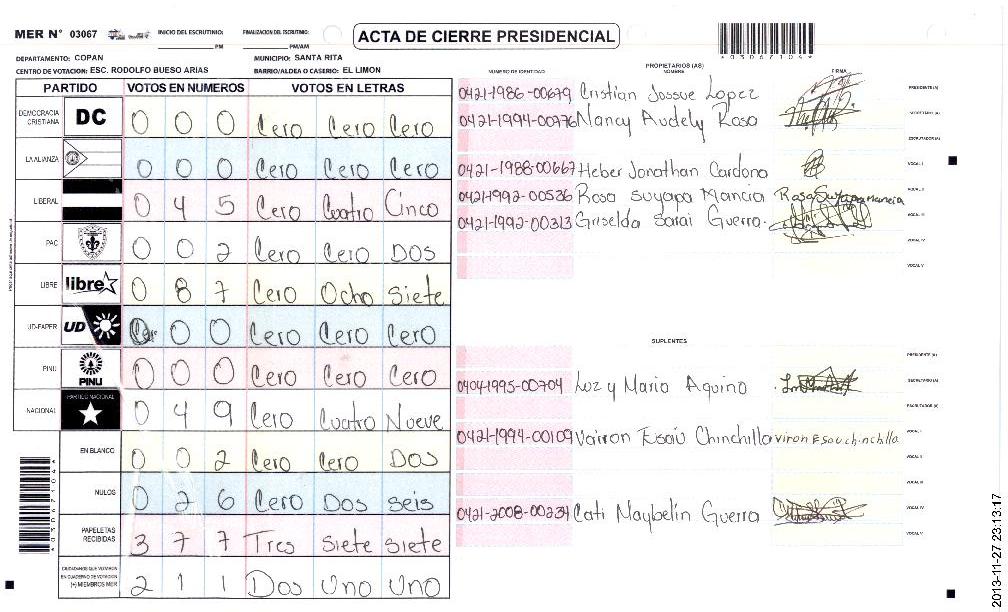 MER N° 03067
INICIO DEL ESCRUTINIO: PM
FINALIZACION DEL ESCRUTINIO: PM/AM
ACTA DE CIERRE PRESIDENCIAL
*0306710 4*
DEPARTAMENTO: COPAN
MUNICIPIO: SANTA RITA
CENTRO DE VOTACION: ESC. RODOLFO BUESO ARIAS
BARRIO/ALDEA O CASERIO: EL LIMON
PARTIDO VOTOS EN NUMEROS VOTOS EN LETRAS
DEMOCRACIA CRISTIANA DC 0 0 0 Cero Cero Cero
LA ALIANZA 0 0 0 Cero Cero Cero
LIBERAL 0 4 5 Cero Cuatro Cinco
PAC 0 0 2 Cero Cero DOS
LIBRE libre 0 8 7 Cero Ocho Siete
UD-FAPER UD 0 0 0 Cero Cero Cero
PINU PINU 0 0 0 Cero Cero Cero
NACIONAL PARTIDO NACIONAL 0 4 9 Cero Cuatro Nueve
EN BLANCO 0 0 2 Cero Cero DOS
NULOS 0 2 6 Cero Dos seis
PAPELETAS RECIBIDAS 3 7 7 Tres siete siete
CIUDADANOS QUE VOTARON EN CUADERNO DE VOTACION (+) MIEMBROS MER 2 1 1 Dos Uno Uno
PROPIETARIOS (AS)
NUMERO DE IDENTIDAD NOMBRE FIRMA
0421-1986-00679 Cristian Jossue Lopez PRESIDENTE (A)
0421-1994-00776 Nancy Audely Rosa SECRETARIO (A)
ESCRUTADOR (A)
0421-1988-00667 Heber Jonathan Cardona VOCAL I
0421-1992-00536 Rosa Suyapa Mancia Rosa Suyapa mancia VOCAL II
0421-1992-00313 Griselda Sarai Guerra. VOCAL III
VOCAL IV
VOCAL V
SUPLENTES
PRESIDENTE (A)
0404-1995-00704 Luz y Maria Aquino SECRETARIO (A)
ESCRUTADOR (A)
0421-1994-00109 Vairon Esaú Chinchilla viron Esau chinchilla VOCAL I
VOCAL II
VOCAL III
0421-2008-00234 Cati Maybelin Guerra VOCAL IV
VOCAL V
2013-11-27 23:13:17